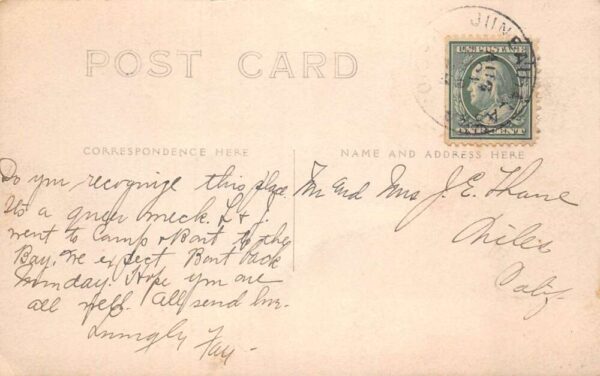 POST CARD
JUNEAU
ALASKA
U.S. POSTAGE
ONE CENT
CORRESPONDENCE HERE
NAME AND ADDRESS HERE
Do you recognize this place
Its a queer
went to Camp & Boat to the
Bay. We expect Boat back
Monday. Hope you are
all well. All send love.
Lovingly Fay -
Mr and Mrs J. E. Thane
Niles
Calif